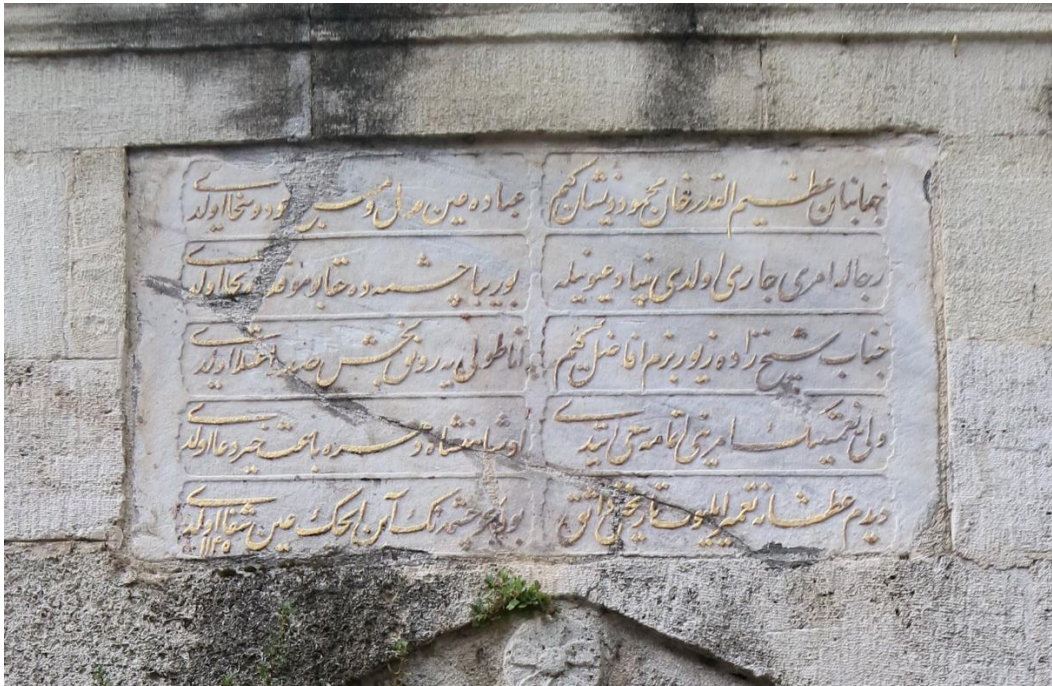 جهانبان عظیم القدر خان محمود ذیشان کیم
عباده عین عدل و جود و سخا اولدی
رجاله امری جاری اولدی بنیاد عیونیله
بو زیبا چشمه ده اولدی
جناب شیخ زاده زیور بزم افاضل کیم
اناطولی یه رونق بخش صدر اعتلا اولدی
ولی نعمتینك امرینی اتمامه سعی ایتدی
او شاهنشاه باعث خیر دعا اولدی
دیدم عطشانه تعمیر تاریخن
بو چشمه نك آبن ایچك عین شفا اولدی
۱۱۴۵